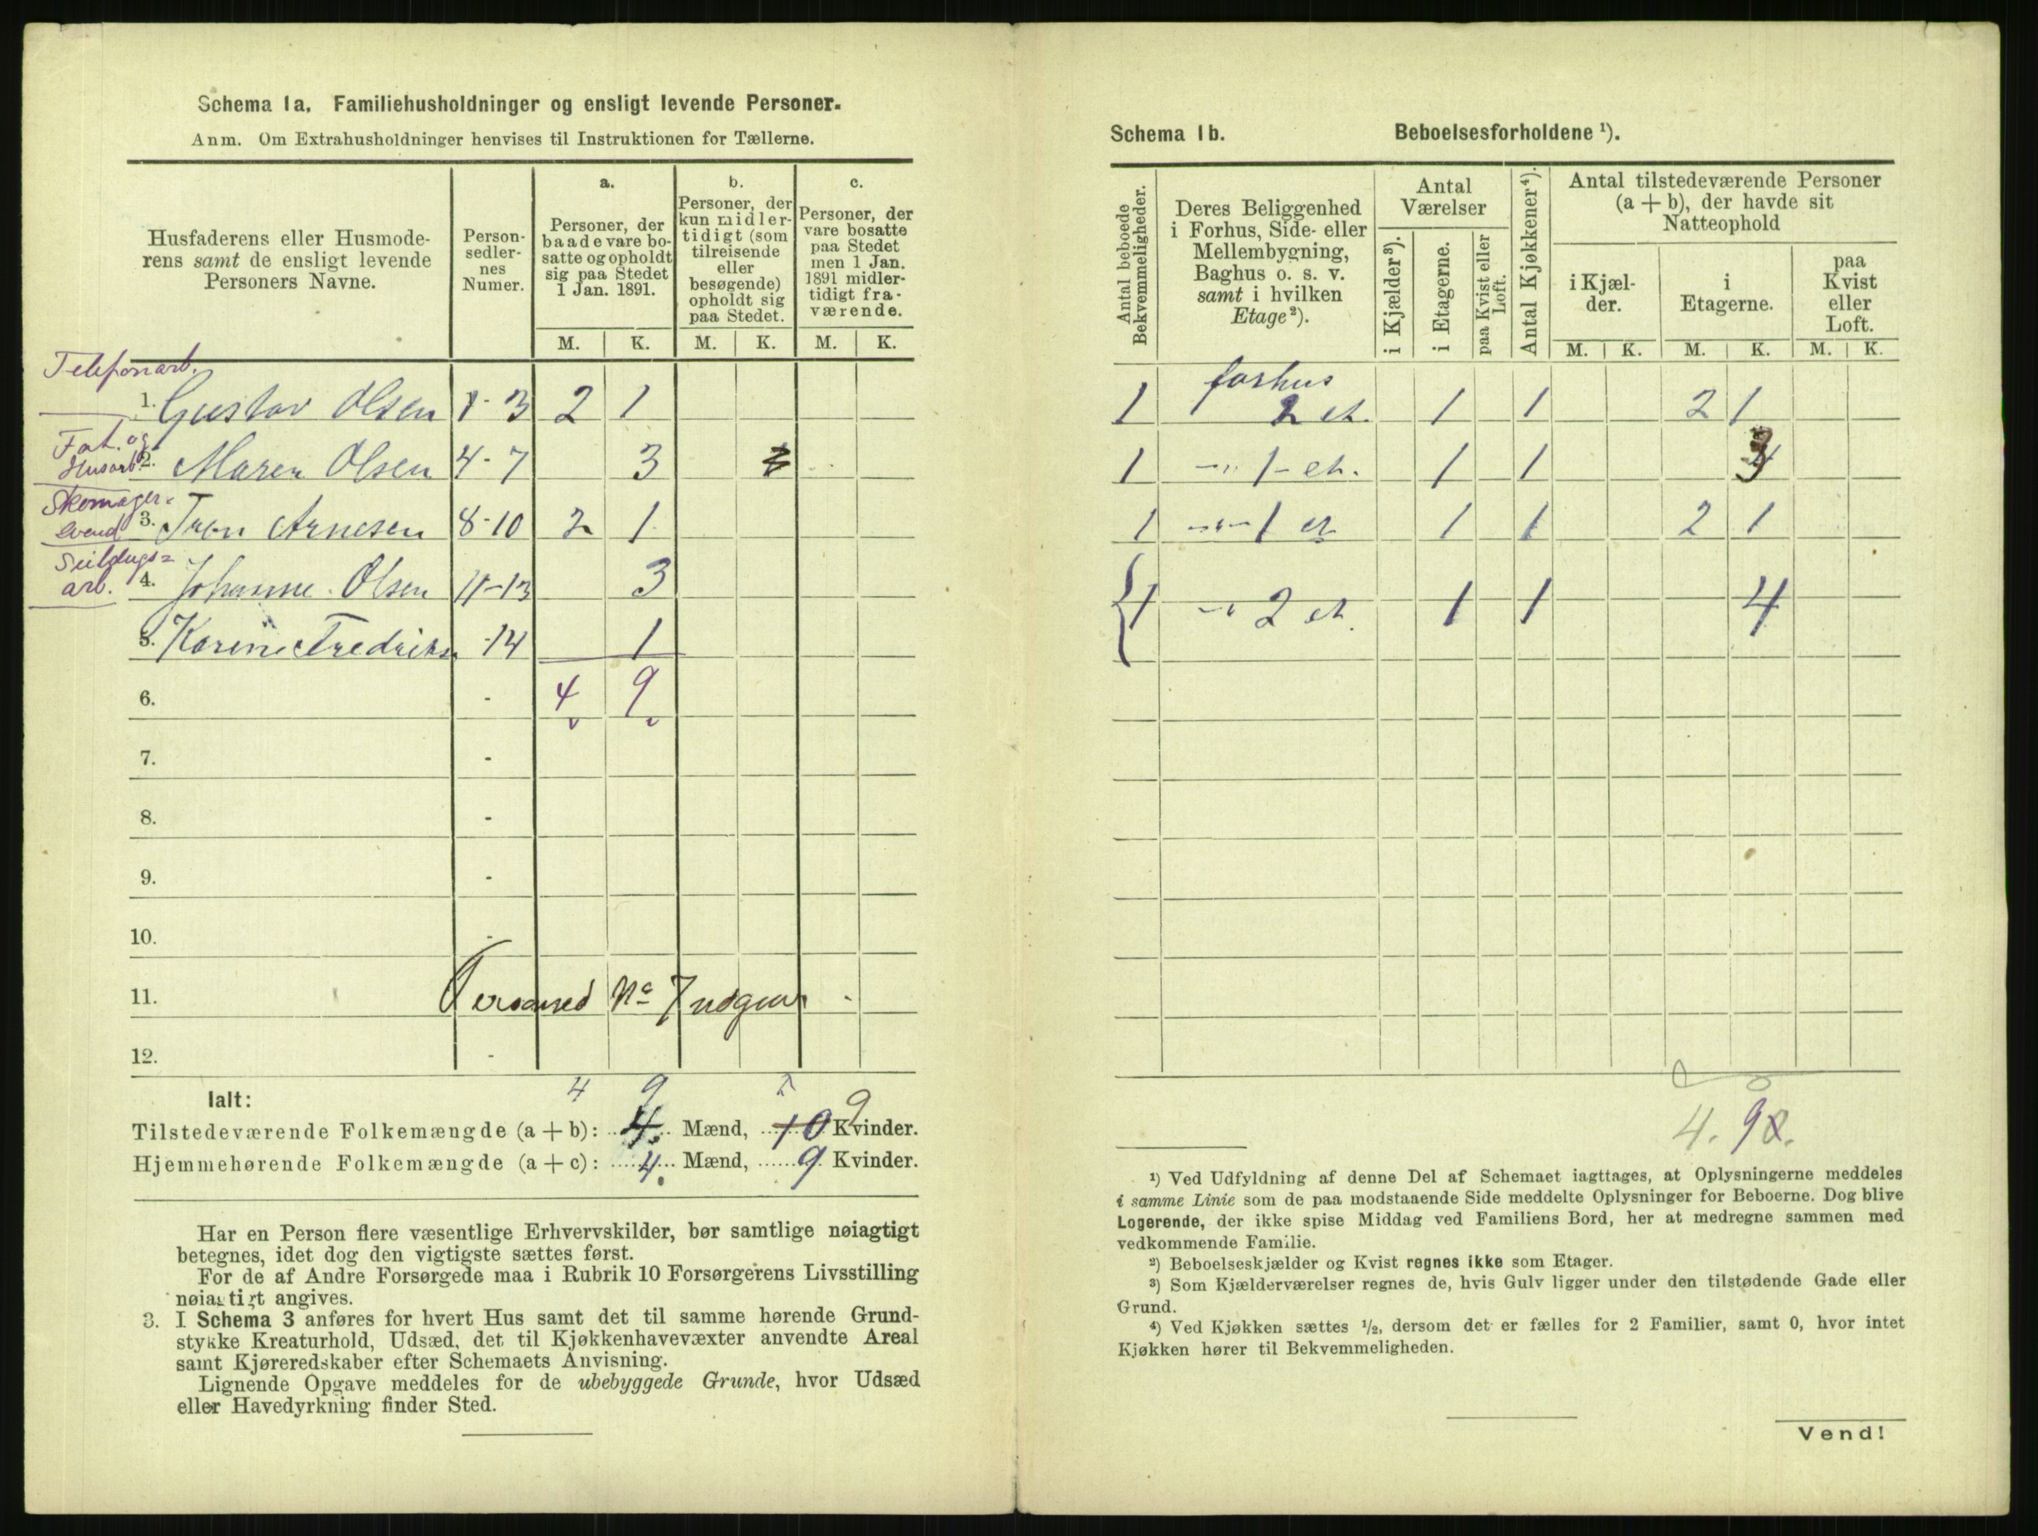 Schema 1a. Familiehusholdninger og ensligt levende Personer.
Anm. Om Extrahusholdninger henvises til Instruktionen for Tællerne.
Husfaderens eller Husmoderens samt de ensligt levende Personers Navne.
Personsedlernes Numer.
a.
Personer, der baade vare bosatte og opholdt sig paa Stedet 1 Jan. 1891.
b.
Personer, der kun midlertidigt (som tilreisende eller besøgende) opholdt sig paa Stedet.
c.
Personer, der vare bosatte paa Stedet men 1 Jan. 1891 midlertidigt fraværende.
M. K. M. K. M. K.
Telefonarb.
1. Gustav Olsen 1-3 2 1
Fat. og
Husarb
2. Maren Olsen 4-7 3
Skomager-
svend
3. Tron Arnesen 8-10 2 1
Seildugs=
arb.
4. Johanne Olsen 11-13 3
5. Karine Fredriks 14 1
6. - 4 9
v v
7. -
8. -
9. -
10. -
11. Personsed No 7 udgaar -
12. -
4 9
Ialt:
Tilstedeværende Folkemængde (a + b): 4. Mænd, 10 9 Kvinder.
Hjemmehørende Folkemængde (a + c): 4. Mænd, 9 Kvinder.
Har en Person flere væsentlige Erhvervskilder, bør samtlige nøiagtigt
betegnes, idet dog den vigtigste sættes først.
For de af Andre Forsørgede maa i Rubrik 10 Forsørgerens Livsstilling
nøiagtigt angives.
3. I Schema 3 anføres for hvert Hus samt det til samme hørende Grund-
stykke Kreaturhold, Udsæd, det til Kjøkkenhavevæxter anvendte Areal
samt Kjøreredskaber efter Schemaets Anvisning.
Lignende Opgave meddeles for de ubebyggede Grunde, hvor Udsæd
eller Havedyrkning finder Sted.
Schema 1b. Beboelsesforholdene ¹).
Antal beboede Bekvemmeligheder.
Deres Beliggenhed i Forhus, Side- eller Mellembygning, Baghus o. s. v. samt i hvilken Etage²).
Antal Værelser
i Kjælder³).
i Etagerne.
paa Kvist eller Loft.
Antal Kjøkkener⁴).
Antal tilstedeværende Personer (a + b), der havde sit Natteophold
i Kjælder.
i Etagerne.
paa Kvist eller Loft.
M. K. M. K. M. K.
forhus
1 2 et. 1 1 2 1
1 -"- 1- et. 1 1 3
1 -"- 1 et 1 1 2 1
1 -"- 2 et. 1 1 4
4. 9
¹) Ved Udfyldning af denne Del af Schemaet iagttages, at Oplysningerne meddeles
i samme Linie som de paa modstaaende Side meddelte Oplysninger for Beboerne. Dog blive
Logerende, der ikke spise Middag ved Familiens Bord, her at medregne sammen med
vedkommende Familie.
²) Beboelseskjælder og Kvist regnes ikke som Etager.
³) Som Kjælderværelser regnes de, hvis Gulv ligger under den tilstødende Gade eller
Grund.
⁴) Ved Kjøkken sættes ½, dersom det er fælles for 2 Familier, samt 0, hvor intet
Kjøkken hører til Bekvemmeligheden.
Vend!